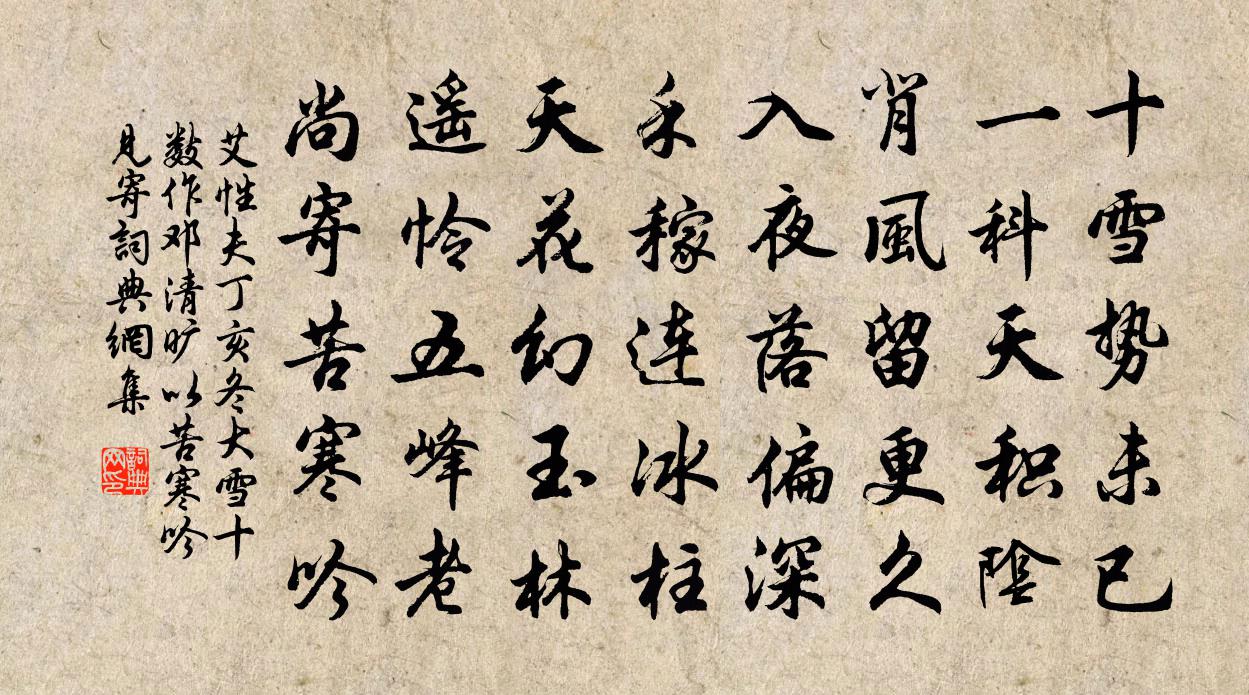 十雪势未已
一科天积陰
肖風留更久
入夜落偏深
禾稼连冰柱
天花幻玉林
遥怜五峰老
尚寄苦寒吟
艾性夫丁亥冬大雪十
数作邓清旷以苦寒吟
見寄詞典網集
詞典
网印